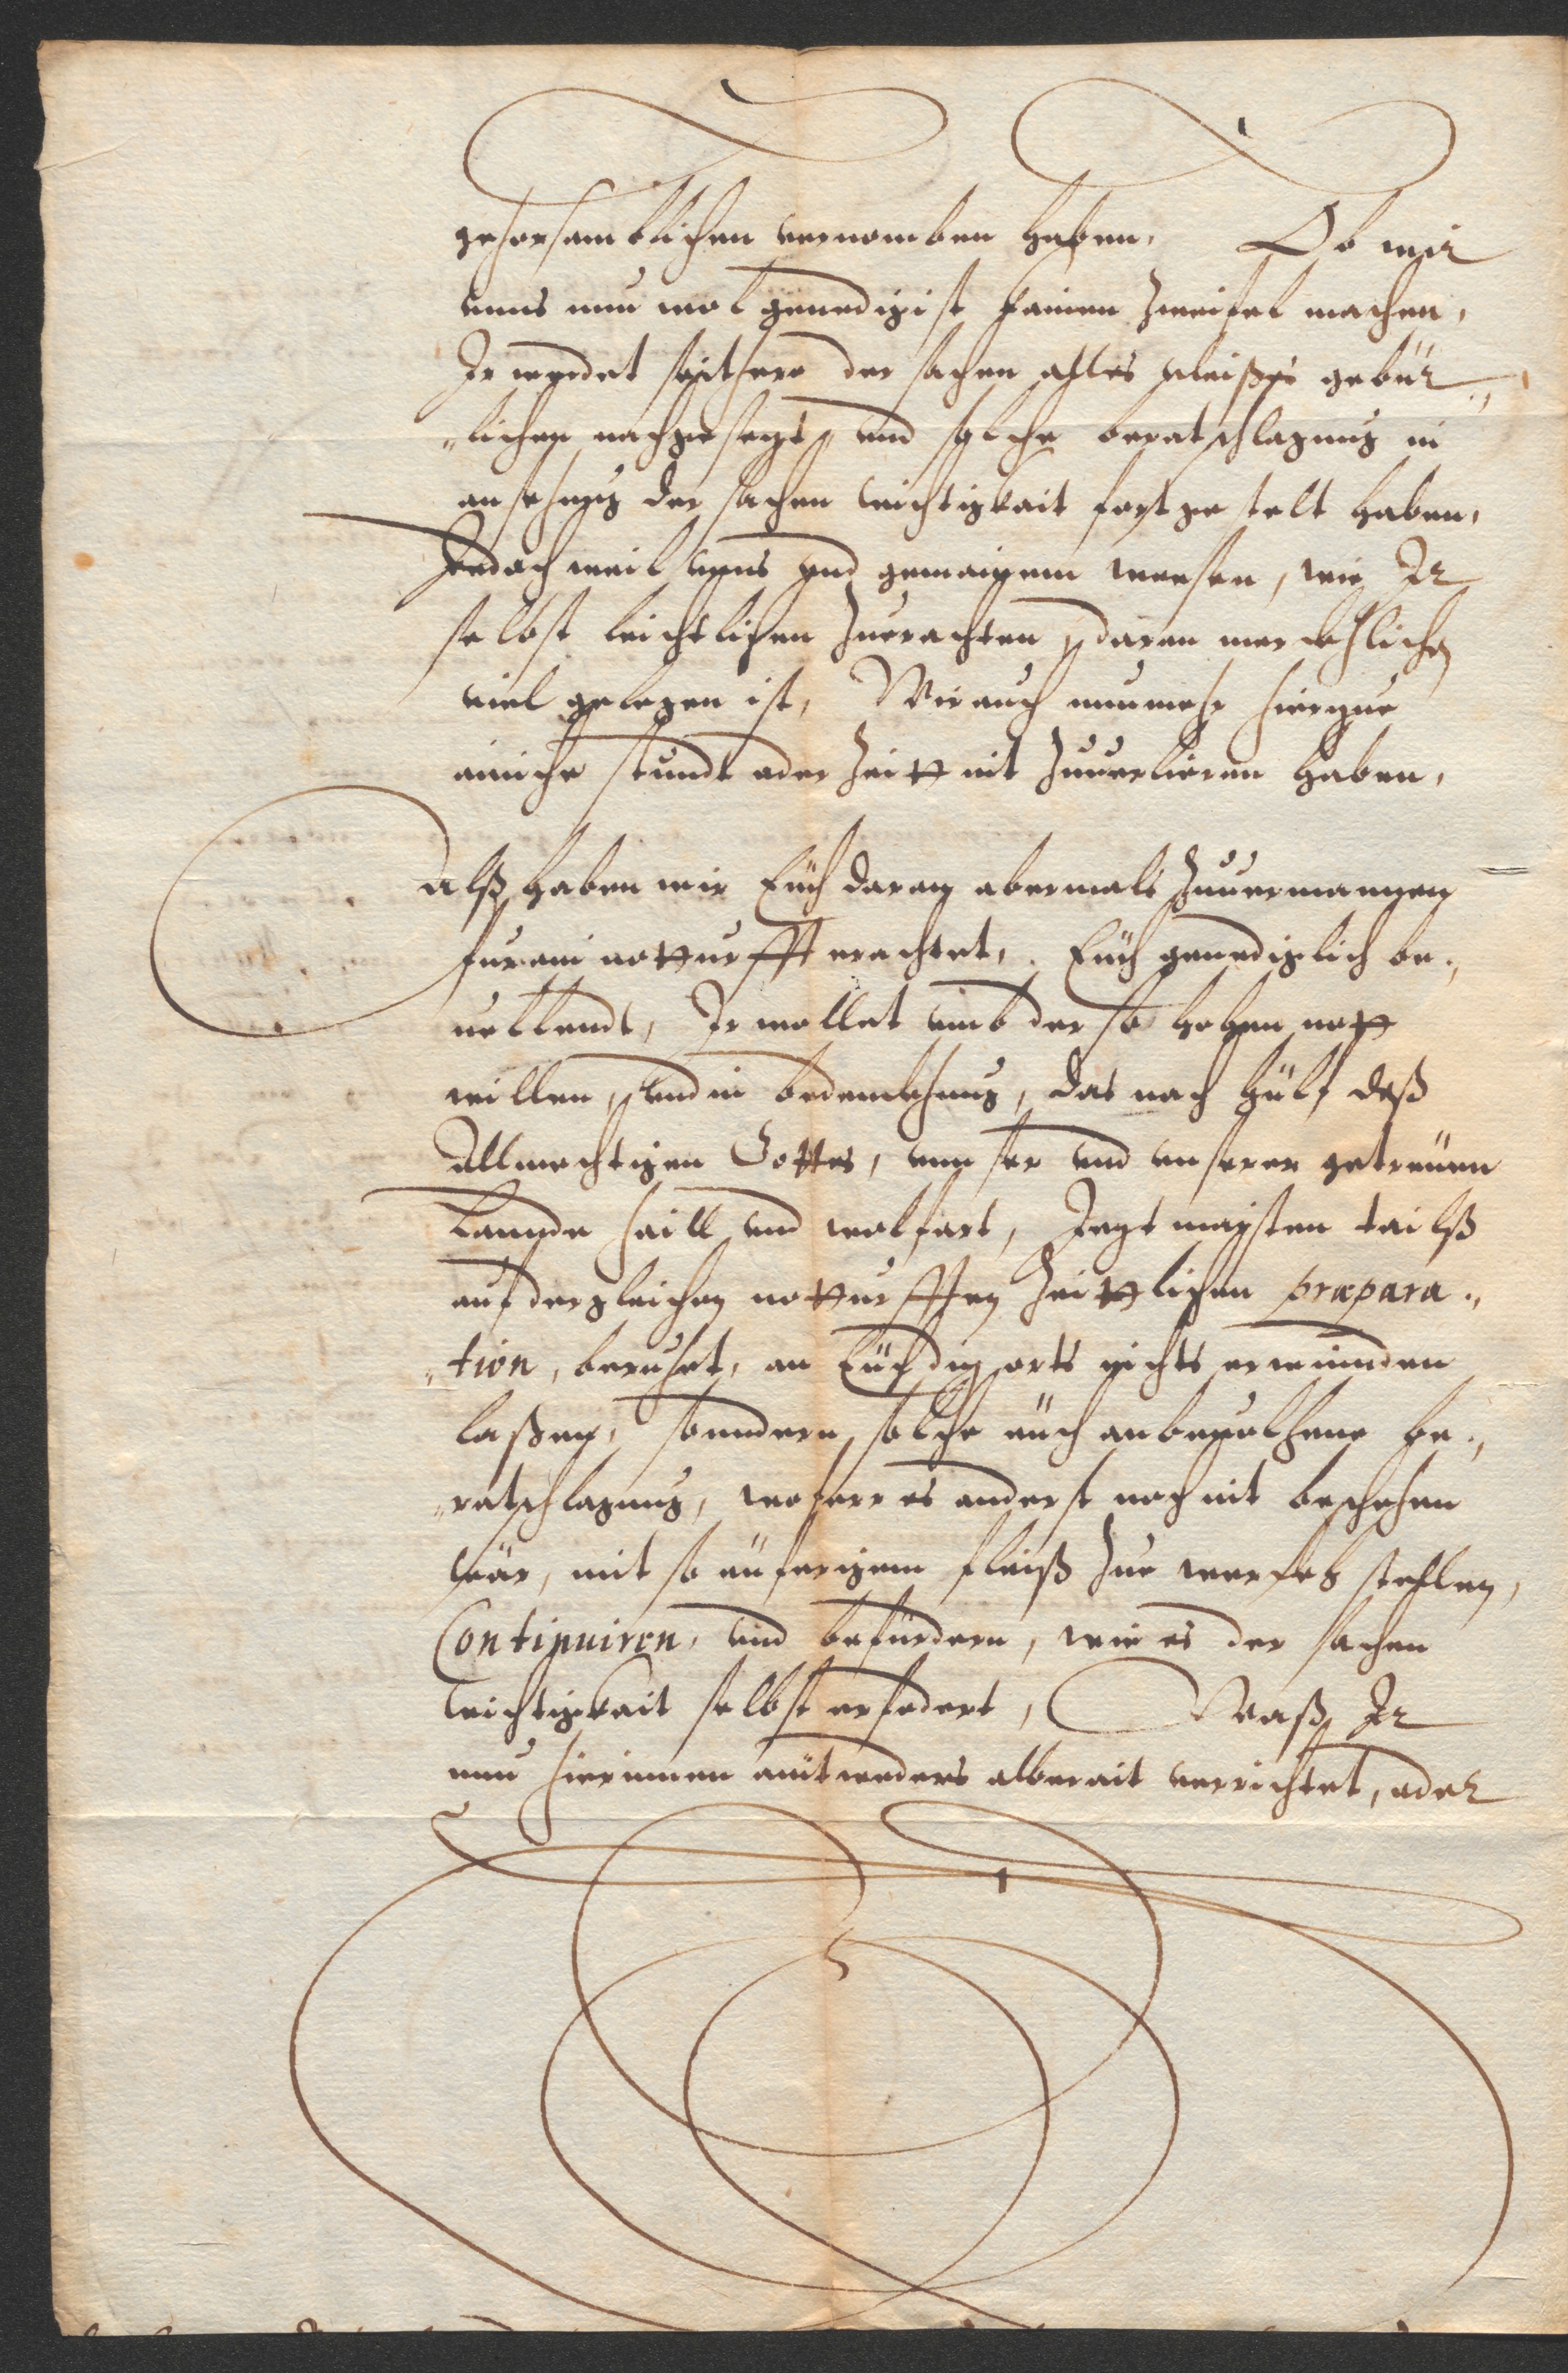 gehorsamblichen vernomben haben, Ob wir
unns nun wol genedigist kainen Zweifel machen,
Ir werdet seithero der sachen alles vleißes gebür„
„lichen nachgesezt, und solche beratschlagung in
ansehung der sachen wichtigkait fortgestelt haben,
Jedoch weil unns und gemainem weesen, wie Ir
selbst leichtlichen Zuerachten, daran merckhlichen
viel gelegen ist, Wir auch nunmehr hierzue
ainiche stundt oder Zeitt nit Zuuerlieren haben,
Alß haben wir Euch daran abermals Zuuermanen
für ain notturfft erachtet, Euch genediglich be„
uelhendt, Ir wollet umb der so hohen nott
willen, und in bedenckhung, das nach hülf deß
Allmechtigen Gottes, unnser und unserer getreüen
Lannde haill und wolfart, Jezt maisten tailß
auf dergleichen notturfften Zeittlichen præpara„
„tion, beruhet, an Euch diß orts nichts erwinnden
laßen, sonndern solche euch anbeuolhene be„
„ratschlagung, wofern es anderst noch nit beschehen
wär, mit so eüferigem fleiß Zue werkh stellen,
Continuiren, und befürdern, wie es der sachen
wichtigkait selbst erfodert, Waß Ir
nun hierinnen eintweders alberait verrichtet, oder